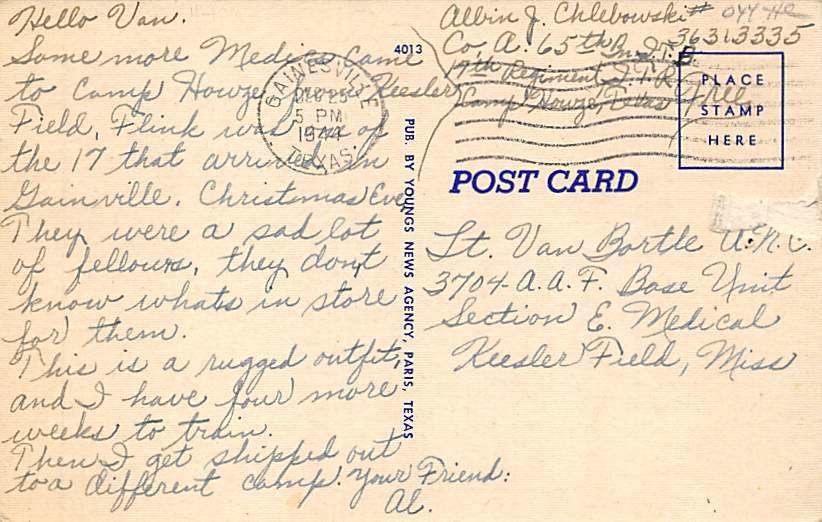 Hello Van.
Some more Medics came
to Camp Howze from Keesler
Field, Flink was one of
the 17 that arrived in
Gainville, Christmas Eve,
They were a sad lot
of fellows, they don't
know whats in store
for them.
This is a rugged outfit,
and I have four more
weeks to train.
Then I get shipped out
to a different camp. Your Friend:
Al.
4013
GAINESVILLE
DEC 25
5 PM
1944
TEXAS
PUB. BY YOUNGS NEWS AGENCY, PARIS, TEXAS
Albin J. Chlebowski #
36313335
Co, A. 65th Bn. I.T.B.
17th Regiment I.T.R.
Camp Howze, Texas
Free
PLACE
STAMP
HERE
POST CARD
Lt. Van Bortle A.N.C.
3704-A.A.F. Base Unit
Section E. Medical
Keesler Field, Miss